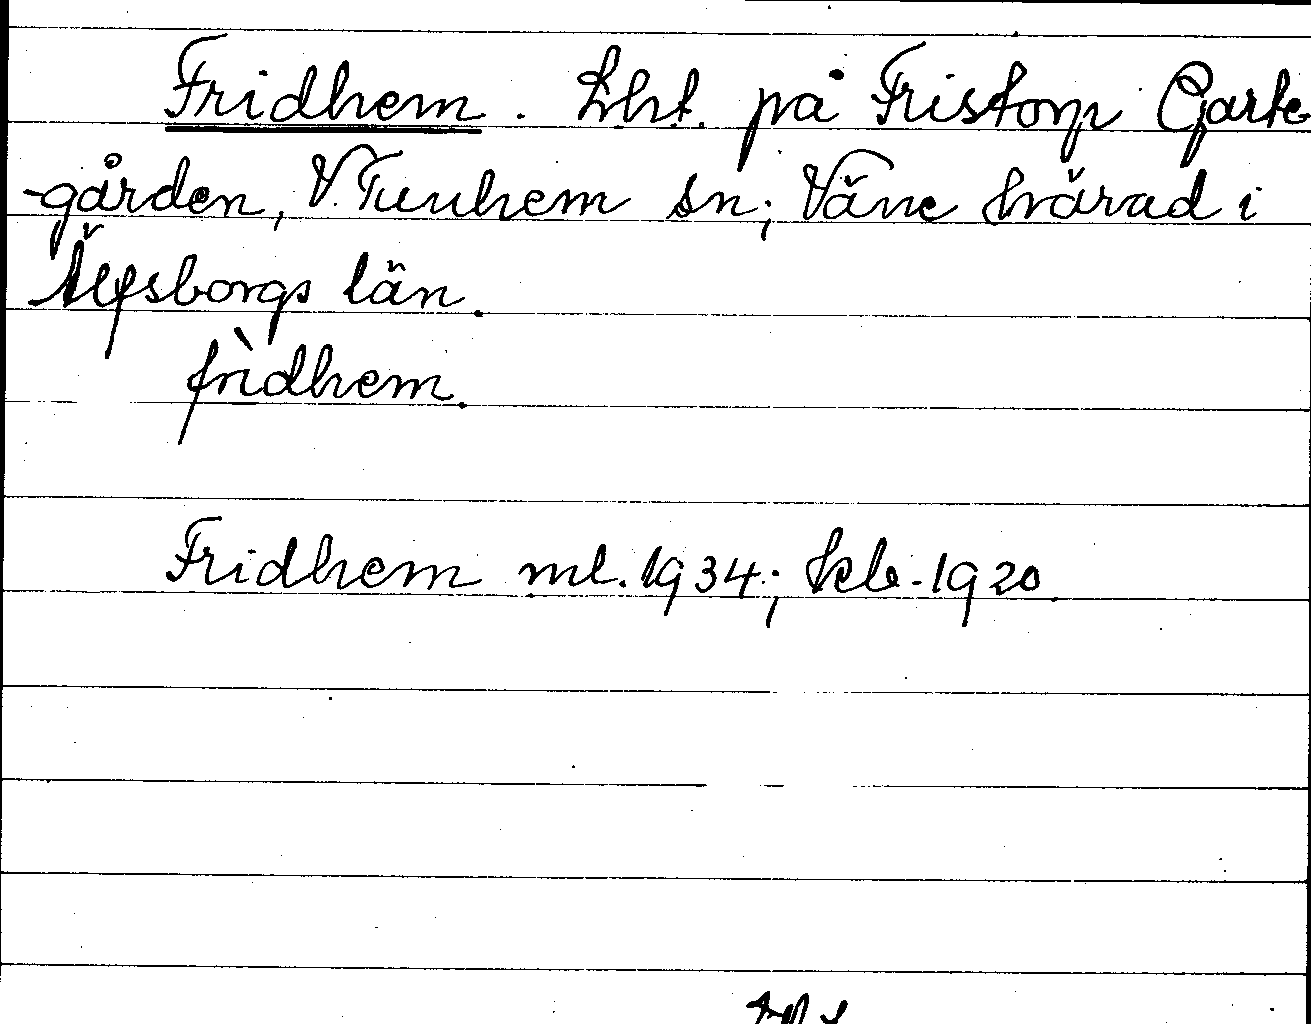 Fridhem. Lht. på Fristorp Garle
-gården, V. Tunhem sn; Väne härad i
Älfsborgs län.
frìdhem.
Fridhem ml. 1934; kb-1920.